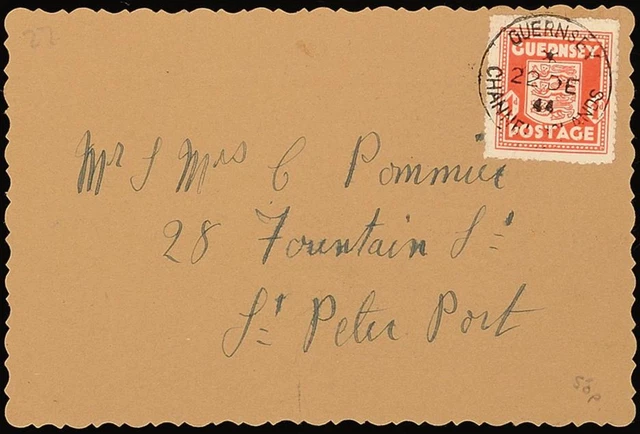 22
GUERNSEY
22 DE
44
CHANNEL ISLANDS
GUERNSEY
POSTAGE
Mr & Mrs C Pommier
28 Fountain St
St Peter Port